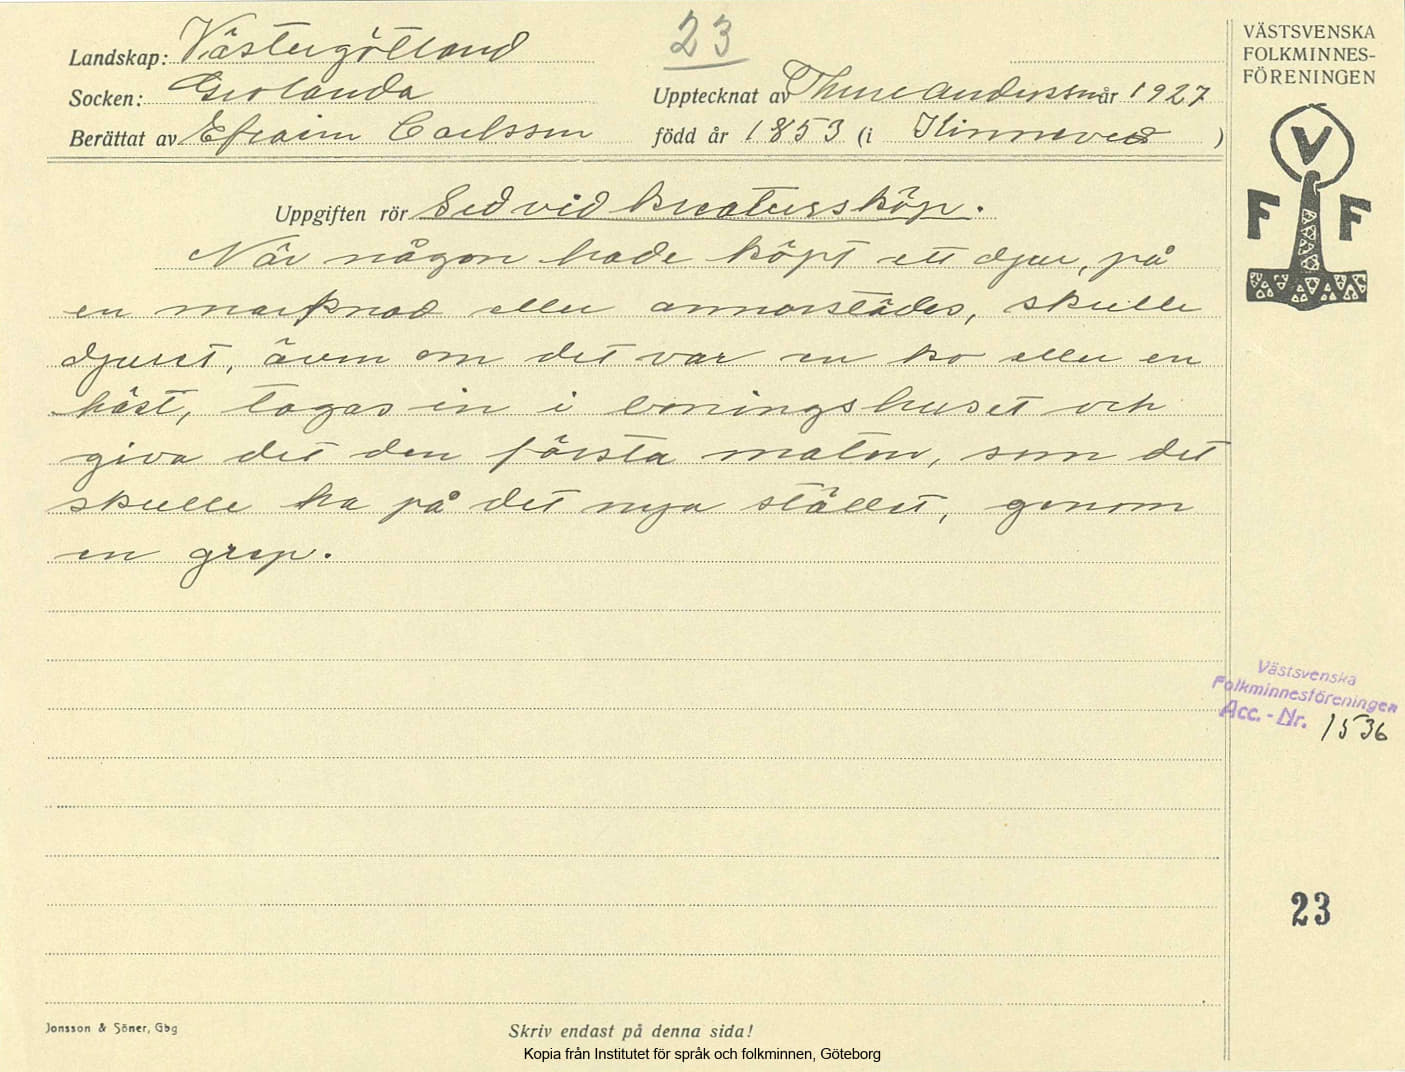 23
VÄSTSVENSKA
FOLKMINNES-
FÖRENINGEN
V
F F
Landskap: Västergötland
Socken: Grolanda
Upptecknat av Thure Andersson år 1927
Berättat av Efraim Carlsson född år 1853 (i Kinneved )
Uppgiften rör Sed vid kreatursköp.
När någon hade köpt ett djur, på
en marknad eller annorstädes, skulle
djuret, även om det var en ko eller en
häst, tagas in i boningshuset och
giva det den första maten, som det
skulle ha på det nya stället, genom
en grep.
Västsvenska
Folkminnesföreningen
Acc.-Nr. 1536
23
Jonsson & Söner, Gbg
Skriv endast på denna sida!
Kopia från Institutet för språk och folkminnen, Göteborg